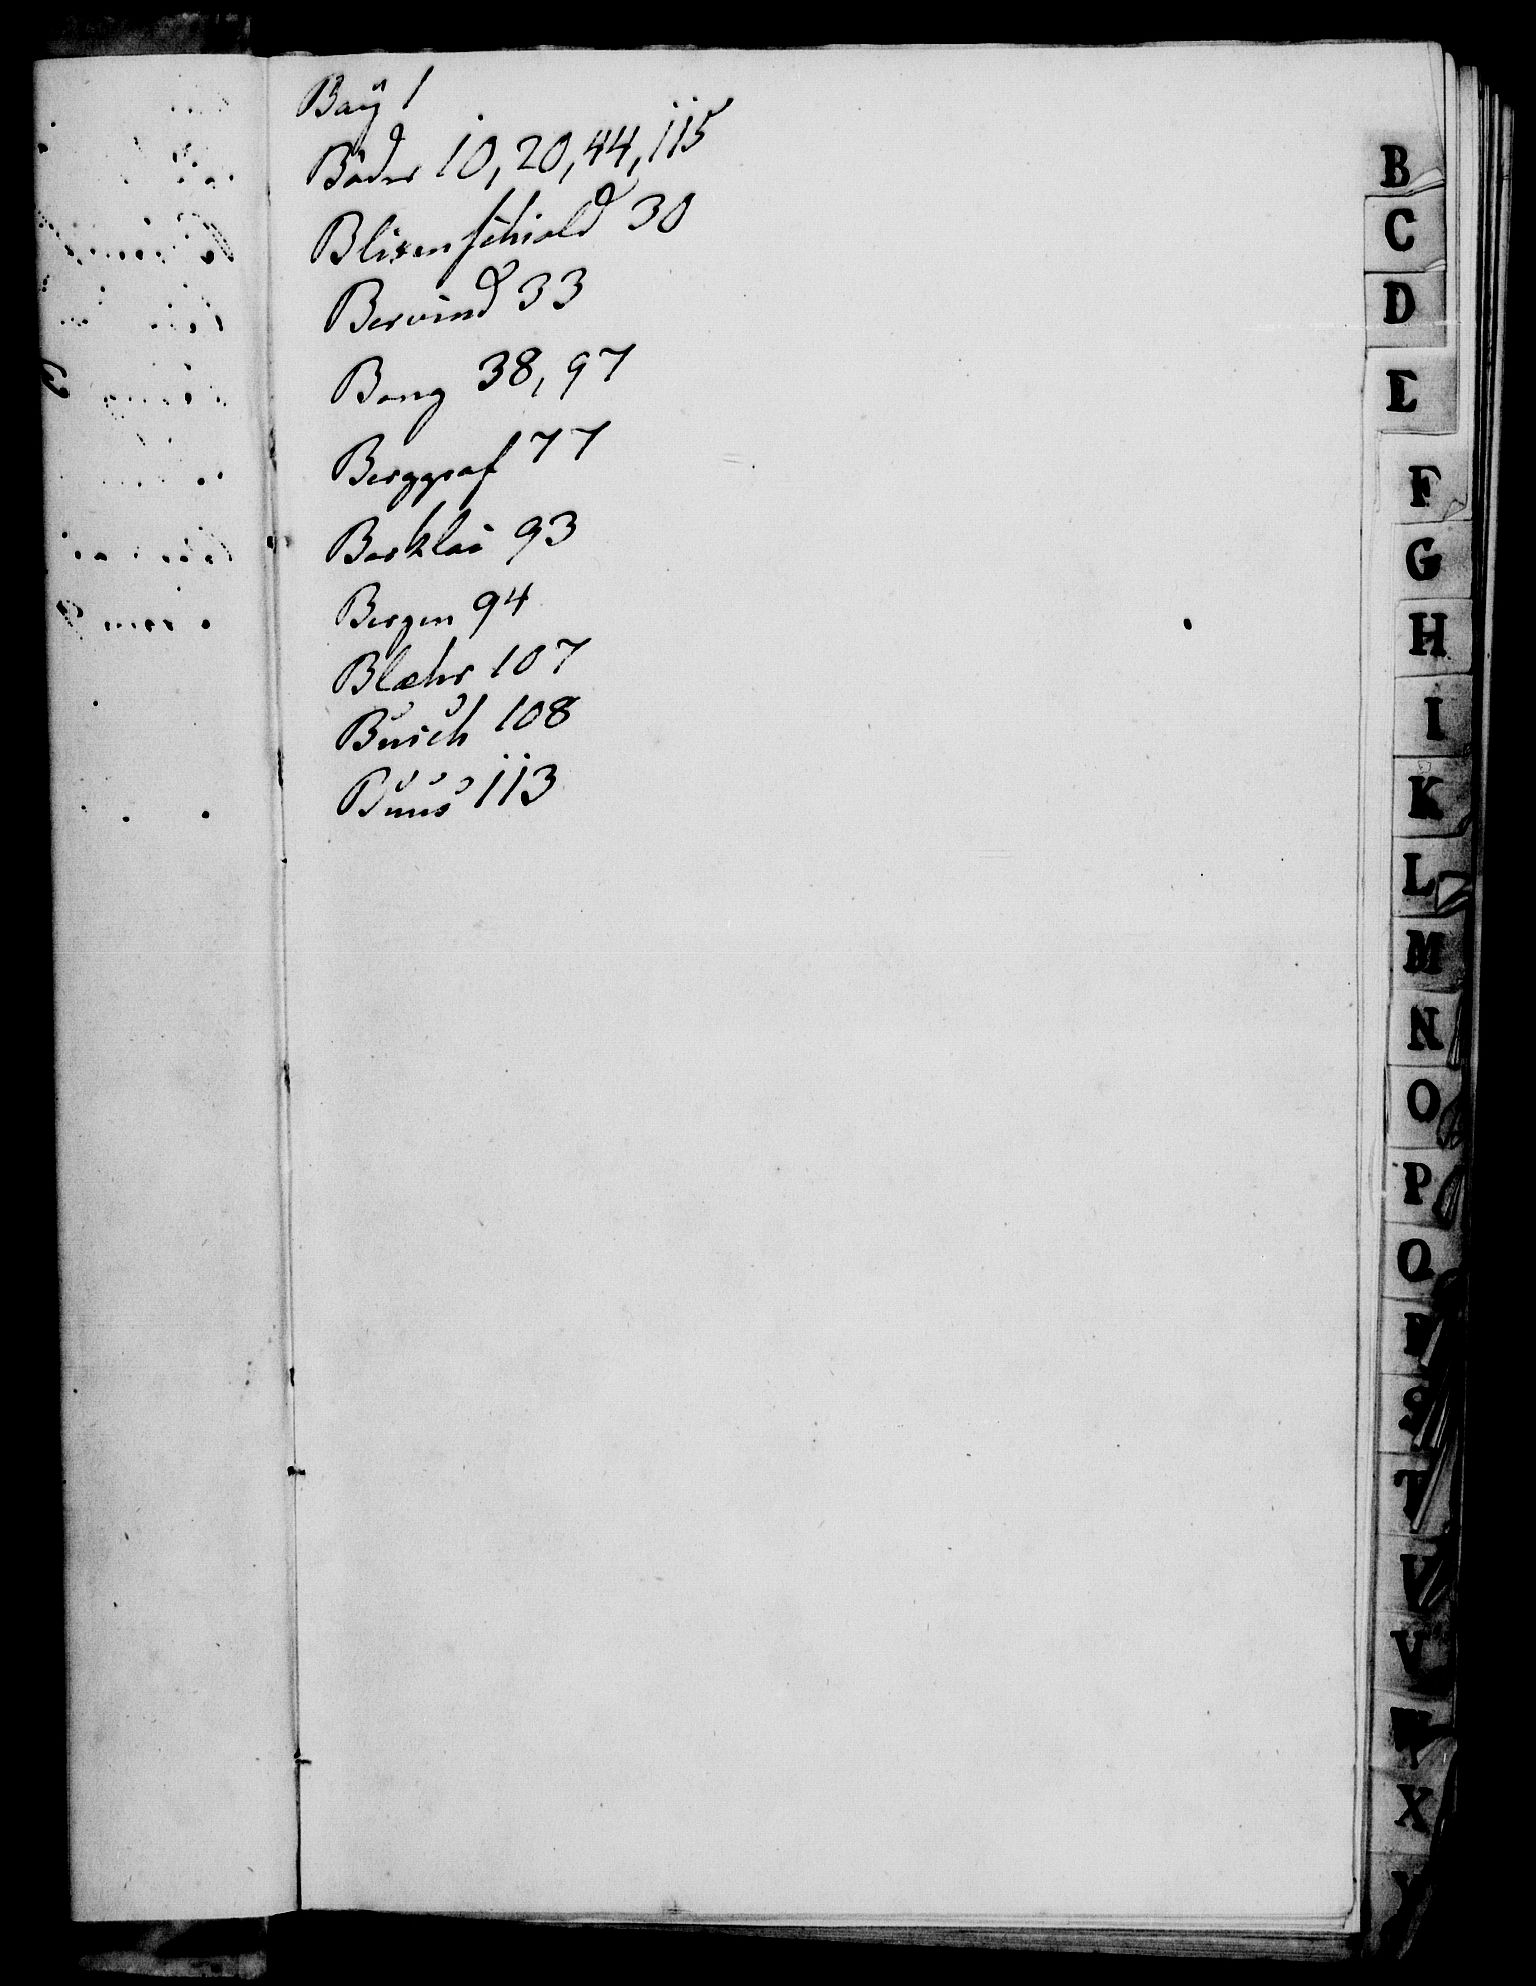 Baÿ 1
Bader 10, 20, 44, 115
Blixenschiold 30
Bervind 33
Bang 38, 97
Berggraf 77
Barklai 93
Bergen 94
Blæhr 107
Busch 108
Buus 113
B
C
D
E
F
G
H
I
K
L
M
N
O
P
Q
R
S
T
V
V
W
X